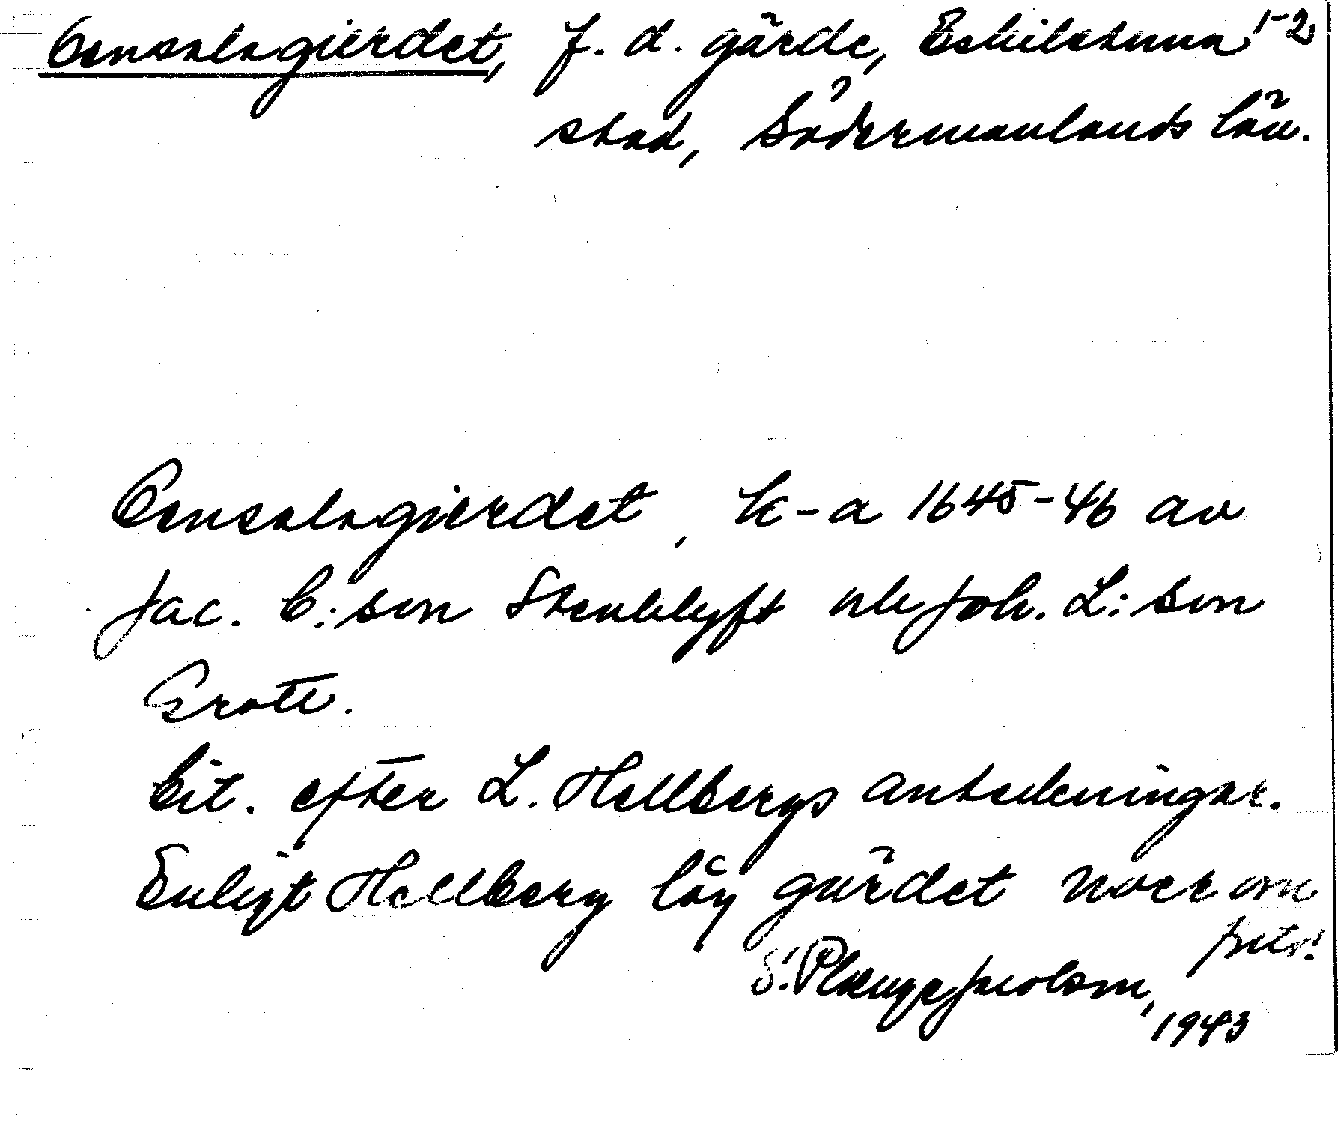 Consalagierdet, f. d. gärde, Eskilstuna 1-2
stad, Södermanlands län.
Consalagierdet, k-a 1645-46 av
Jac. C:son Stenklyft och Joh. L:son
Grote.
Cit. efter L. Hellbergs anteckningar.
Enligt Hellberg låg gärdet norr om
forts!
S. Plænge Jacobson,
1943